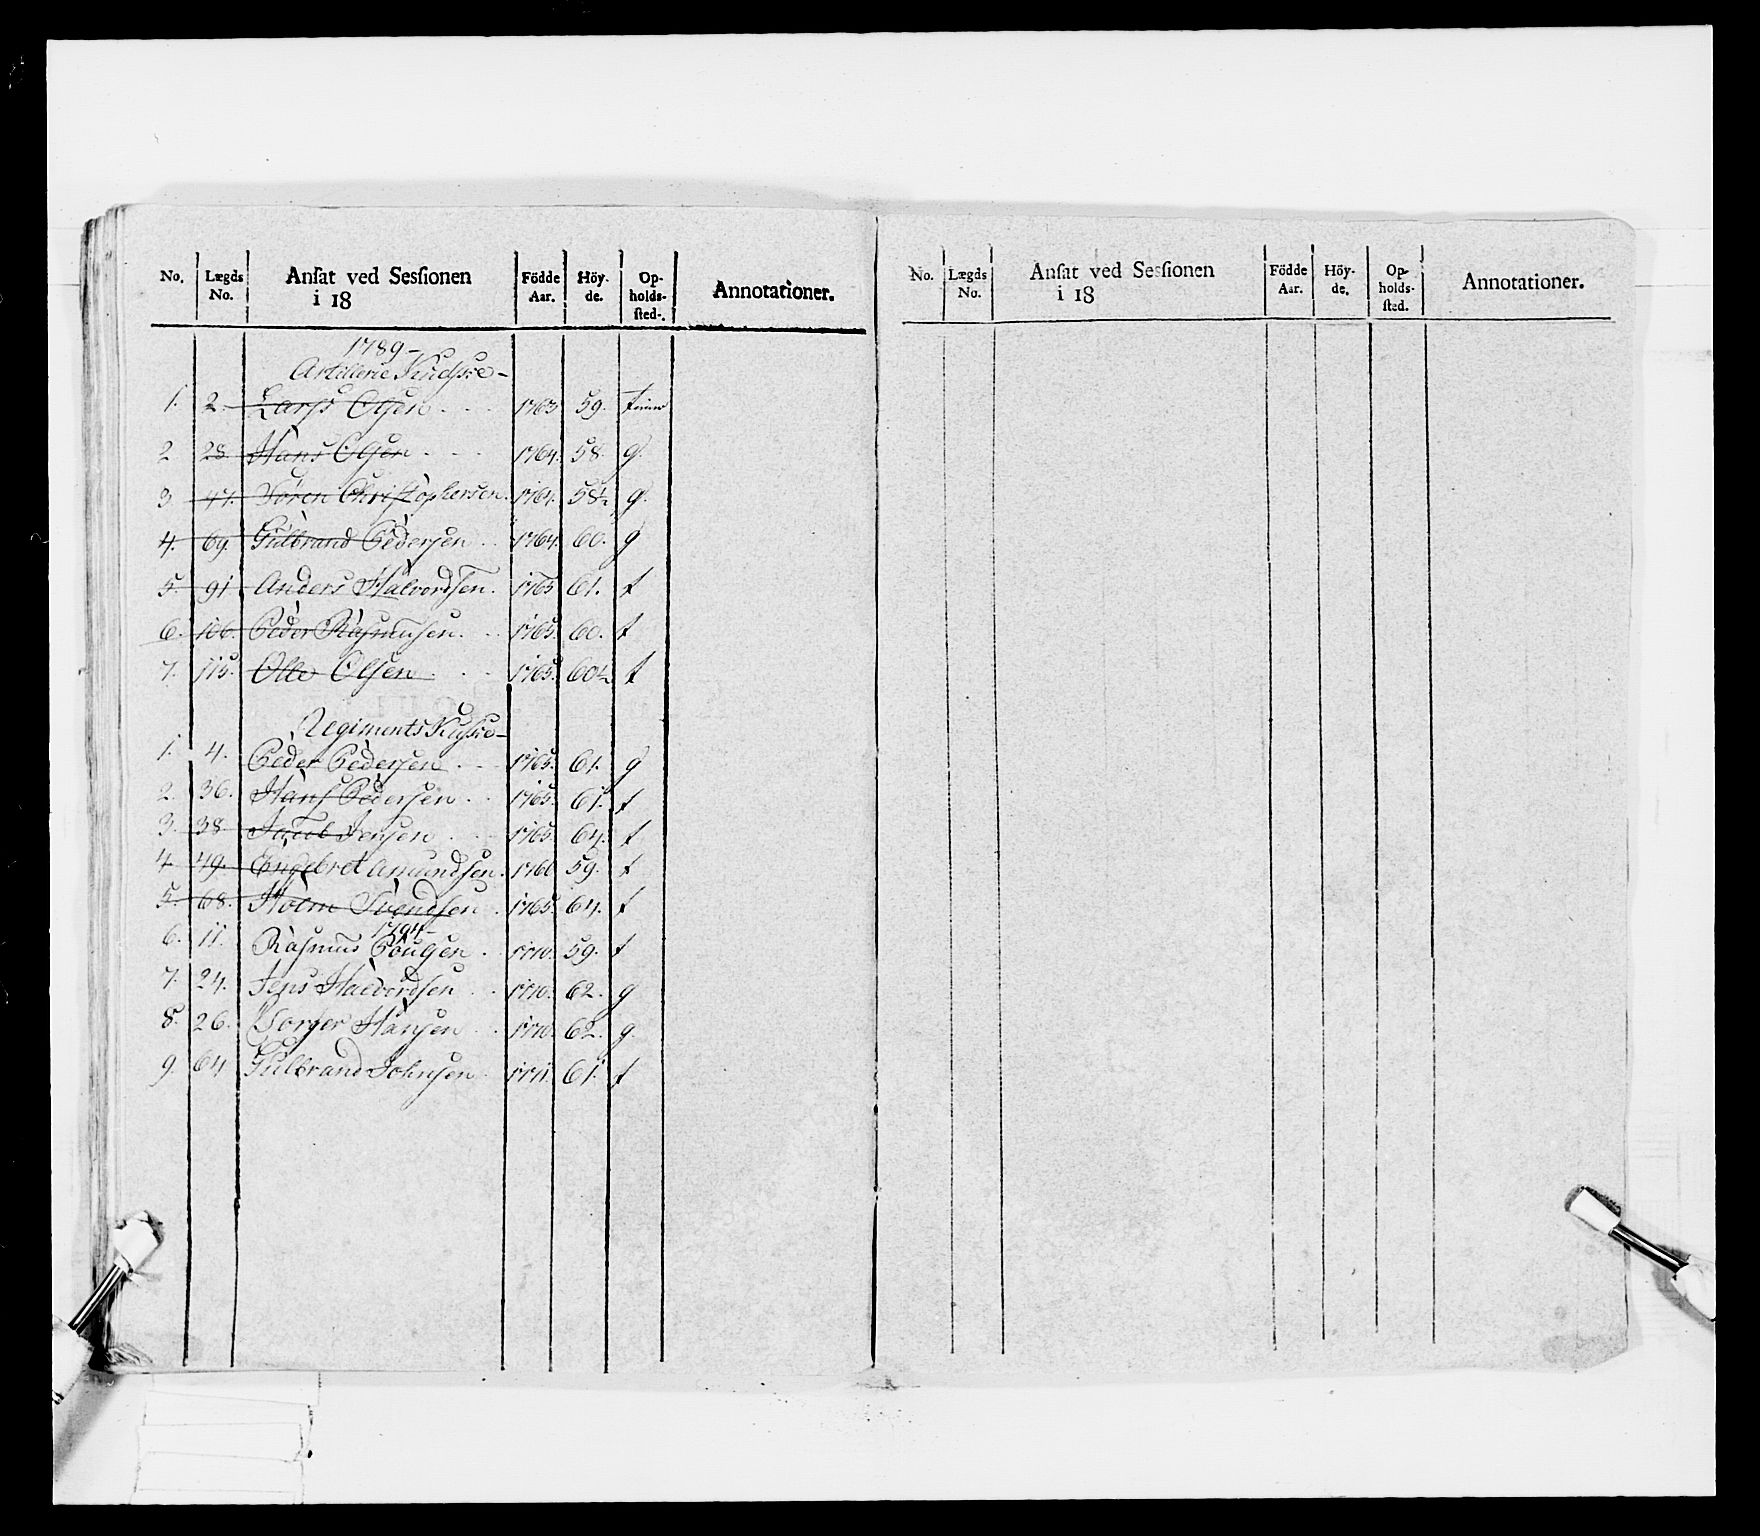 No. Lægds No. Ansat ved Sessionen i 18 Födde Aar. Höyde. Opholdssted. Annotationer.
1789-
Artillerie Kudske-
1. 2. Larss Olsen . . . 1763 59.
2 28 Hans Olsen . . . 1764. 58. g.
3 47. Sören Christophersen. 1764. 58½ g.
4. 69. Gulbrand Pedersen . . 1764. 60. g
5. 91 Anders Halvordsen. 1765 61. t
6. 106. Peder Rasmusen. . . 1765. 60. t
7. 115. Olle Olsen . . . 1765. 60½ t
Regiments Kuske-
1. 4. Peder Pedersen . . . 1765. 61. g
2. 36. Hans Pedersen . . 1765. 61. t
3. 38. Jacob Jensen . . . 1765. 64. t
4. 49. Engebret Amundsen. 1766 59. t
5. 68. Holm Svendsen . 1765. 64. t
1794-
6. 11. Rasmus Poulsen . 1770. 59. t
7. 24. Jens Halvordsen . . 1770. 62. g
8. 26. Torger Hansen . . 1770. 62. g.
9. 64 Gulbrand Johnsen . 1771. 61. t
No. Lægds No. Ansat ved Sessionen i 18 Födde Aar. Höyde. Opholdssted. Annotationer.